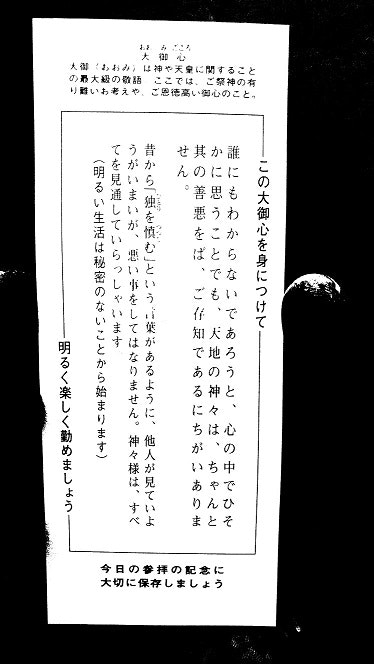 おおみごころ
大御心
大御(おおみ)は神や天皇に関すること
の最大級の敬語 ここでは、ご祭神の有
り難いお考えや、ご恩徳高い御心のこと。
この大御心を身につけて
誰にもわからないであろうと、心の中でひそ
かに思うことでも、天地の神々は、ちゃんと
其の善悪をば、ご存知であるにちがいありま
せん。
昔から「独を慎む」という言葉があるように、他人が見ていよ
うがいまいが、悪い事をしてはなりません。神々様は、すべ
てを見通していらっしゃいます
(明るい生活は秘密のないことから始まります)
明るく楽しく勤めましょう
今日の参拝の記念に
大切に保存しましょう